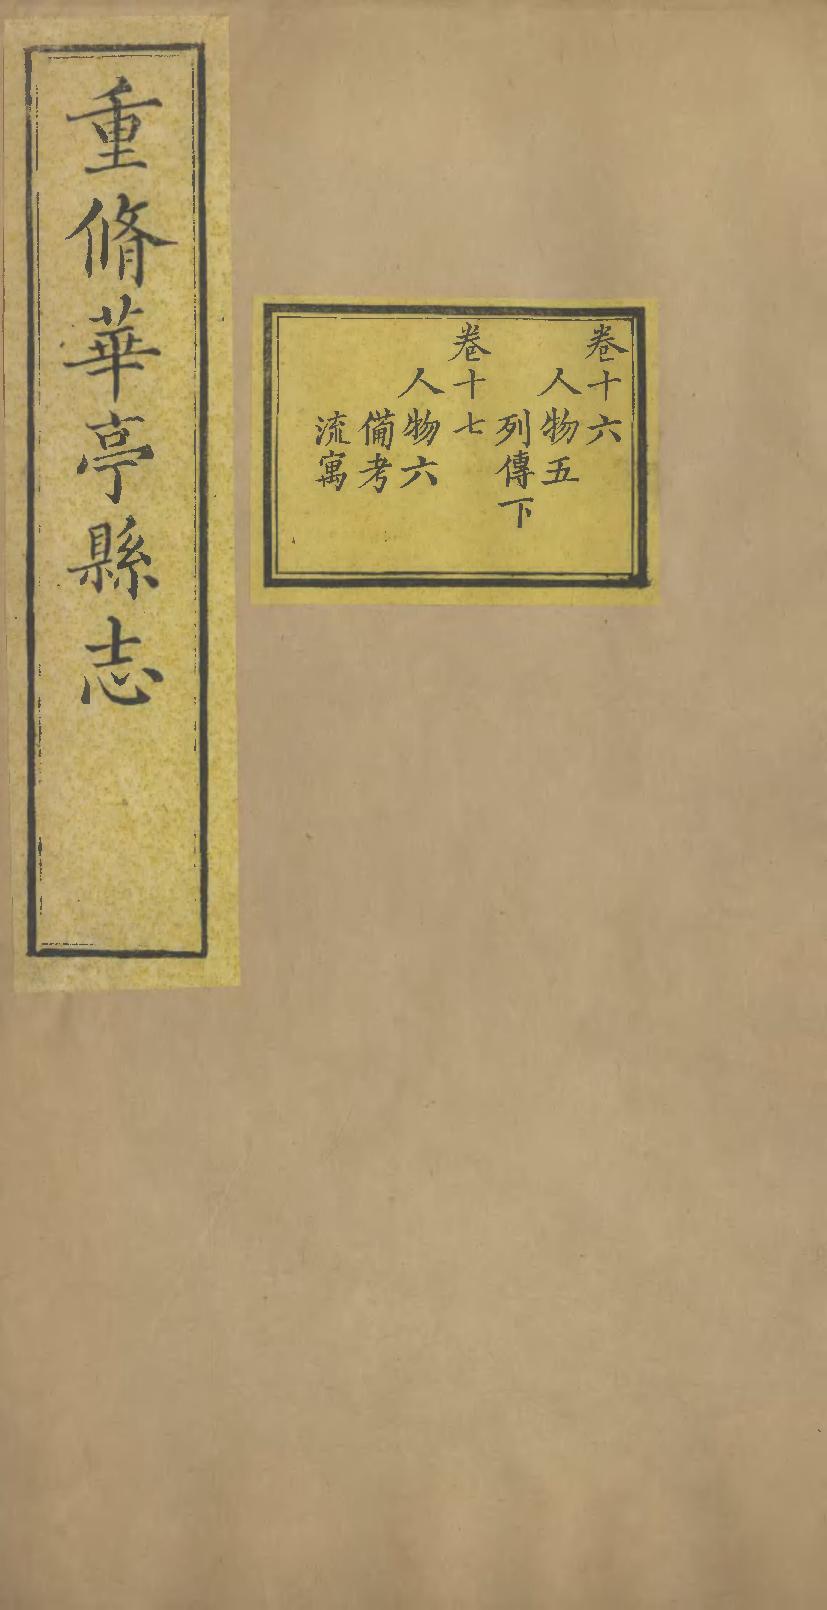 重脩華亭縣志
卷十六
人物五
列傳下
卷十七
人物六
備考
流寓